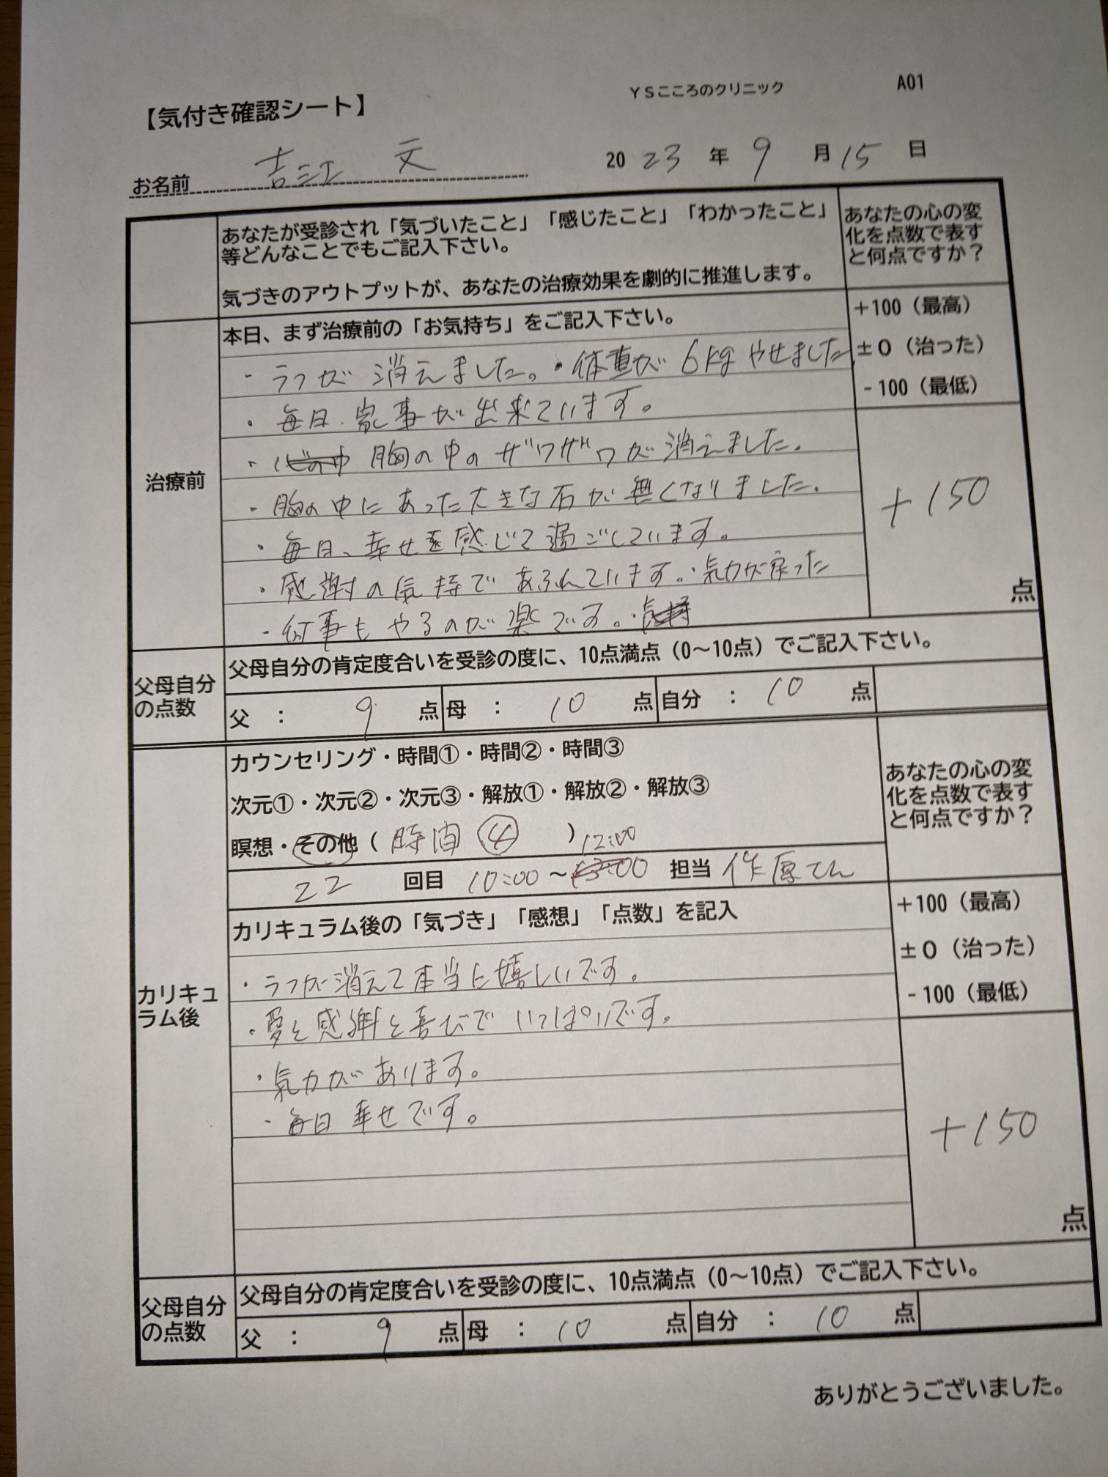 YSこころのクリニック A01
【気付き確認シート】
お名前 吉江 文 2023年9月15日
あなたが受診され「気づいたこと」「感じたこと」「わかったこと」
等どんなことでもご記入下さい。
気づきのアウトプットが、あなたの治療効果を劇的に推進します。
あなたの心の変
化を点数で表す
と何点ですか？
治療前
本日、まず治療前の「お気持ち」をご記入下さい。
・うつが 消えました。・体重が6kgやせました
・毎日、家事が出来ています。
・胸の中のザワザワが消えました。
・胸の中にあった大きな石が無くなりました。
・毎日、幸せを感じて過ごしています。
・感謝の気持であふれています。・気力が戻った
・何事もやるのが楽です。
+100（最高）
±0（治った）
-100（最低）
+150
点
父母自分
の点数
父母自分の肯定度合いを受診の度に、10点満点（0～10点）でご記入下さい。
父 ： 9 点 母 ： 10 点 自分 ： 10 点
カリキュ
ラム後
カウンセリング・時間①・時間②・時間③
次元①・次元②・次元③・解放①・解放②・解放③
瞑想・その他（ 時間 ④ ）12:00
22 回目 10:00～ 担当
あなたの心の変
化を点数で表す
と何点ですか？
カリキュラム後の「気づき」「感想」「点数」を記入
・うつが消えて本当に嬉しいです。
・愛と感謝と喜びでいっぱいです。
・気力があります。
・毎日幸せです。
+100（最高）
±0（治った）
-100（最低）
+150
点
父母自分
の点数
父母自分の肯定度合いを受診の度に、10点満点（0～10点）でご記入下さい。
父 ： 9 点 母 ： 10 点 自分 ： 10 点
ありがとうございました。